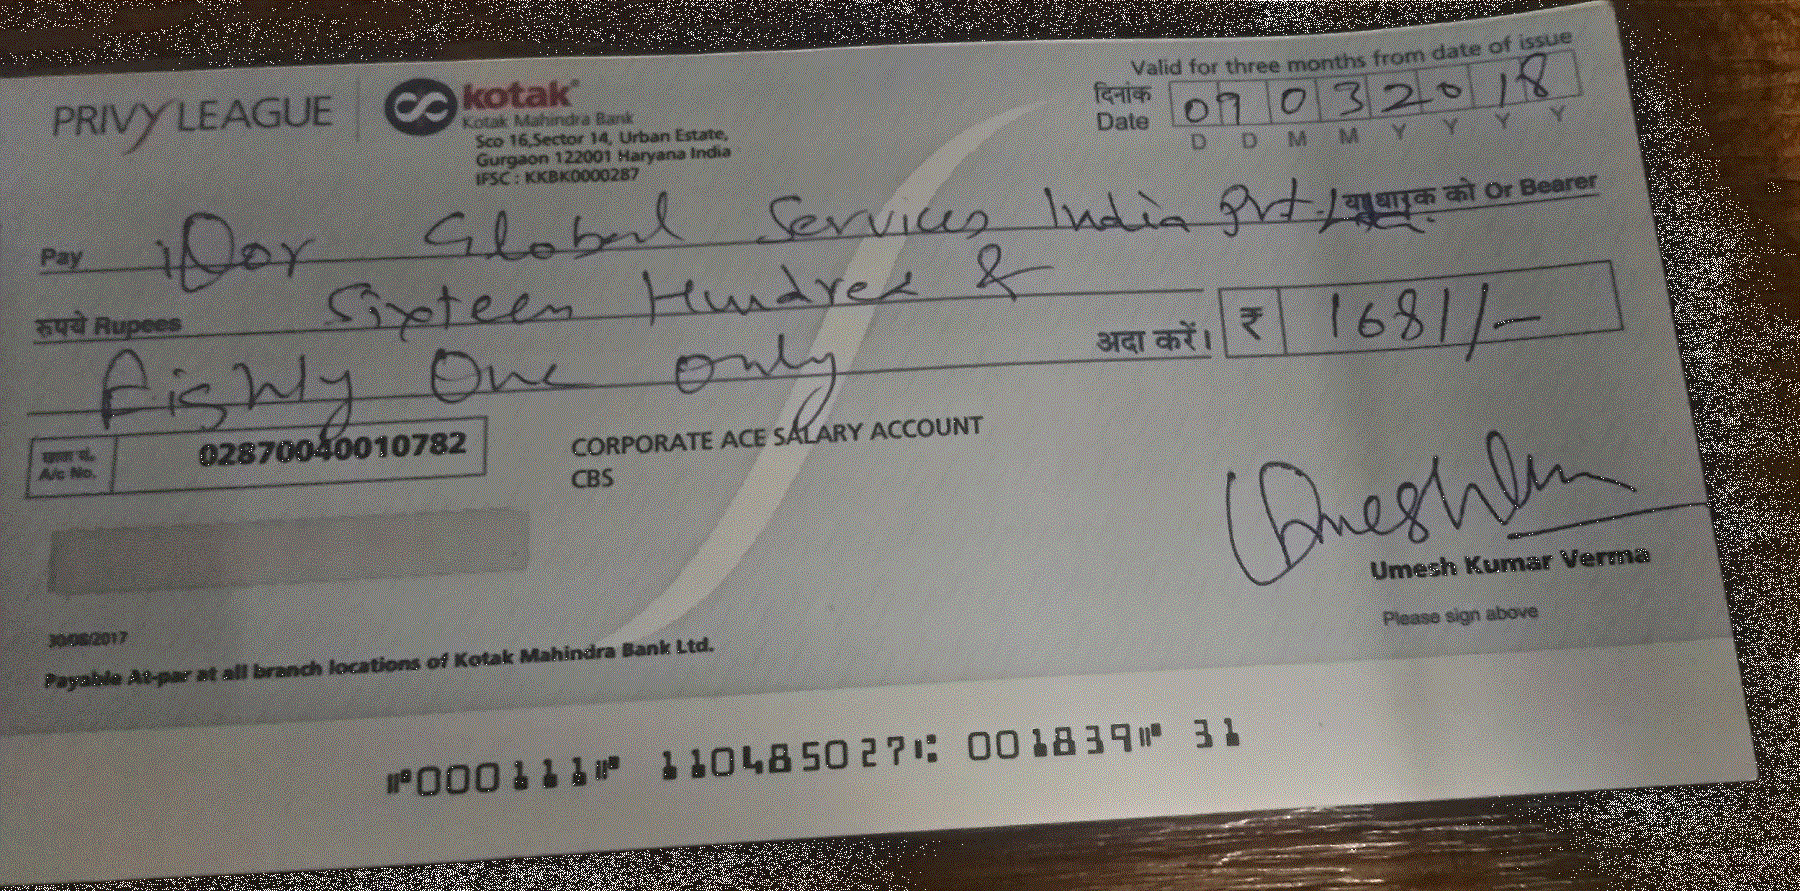 PRIVY LEAGUE
kotak
Kotak Mahindra Bank
Sco 16,Sector 14, Urban Estate,
Gurgaon 122001 Haryana India
IFSC : KKBK0000287
Valid for three months from date of issue
दिनांक
Date 09032018
D D M M Y Y Y Y
Pay iDor Global Services India Pvt. या धारक को Or Bearer
रुपये Rupees Sixteen Hundred &
Eighty One only अदा करें। ₹ 1681/-
खाता सं.
A/c No. 02870040010782
CORPORATE ACE SALARY ACCOUNT
CBS
Umesh
Umesh Kumar Verma
Please sign above
30/08/2017
Payable At-par at all branch locations of Kotak Mahindra Bank Ltd.
⑈000111⑈ 110485027⑆ 001839⑈ 31